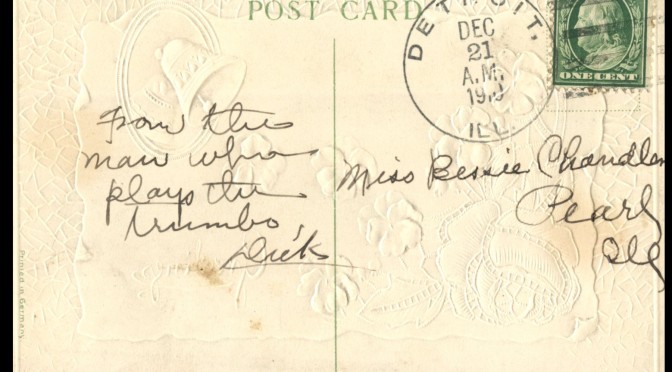 POST CARD
DETROIT.
DEC
21
A.M.
ILL.
ONE CENT
from the
man who
plays the
trumbo
Dick
Miss Bessie Chandler
Pearl
Ill
Printed in Germany